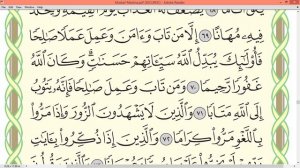 يُضَٰعَفْ لَهُ ٱلْعَذَابُ يَوْمَ ٱلْقِيَٰمَةِ وَيَخْلُدْ
فِيهِۦ مُهَانًا ٦٩ إِلَّا مَن تَابَ وَءَامَنَ وَعَمِلَ عَمَلًا صَٰلِحًا
فَأُو۟لَٰٓئِكَ يُبَدِّلُ ٱللَّهُ سَيِّـَٔاتِهِمْ حَسَنَٰتٍ ۗ وَكَانَ ٱللَّهُ
غَفُورًا رَّحِيمًا ٧٠ وَمَن تَابَ وَعَمِلَ صَٰلِحًا فَإِنَّهُۥ يَتُوبُ
إِلَى ٱللَّهِ مَتَابًا ٧١ وَٱلَّذِينَ لَا يَشْهَدُونَ ٱلزُّورَ وَإِذَا مَرُّوا۟
بِٱللَّغْوِ مَرُّوا۟ كِرَامًا ٧٢ وَٱلَّذِينَ إِذَا ذُكِّرُوا۟ بِـَٔايَٰتِ